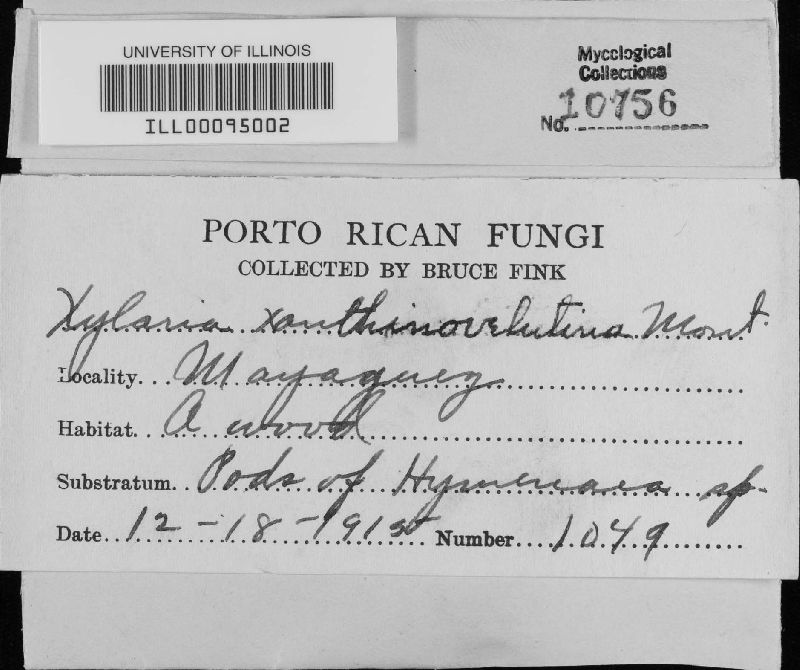 UNIVERSITY OF ILLINOIS
ILL00095002
Mycological
Collections
No. 10756
PORTO RICAN FUNGI
COLLECTED BY BRUCE FINK
Xylaria xanthinovelutina Mont.
Locality... Mayaguez
Habitat... A wood
Substratum.. Pods of Hymenaea sp.
Date.. 12-18-1915 Number.... 1049